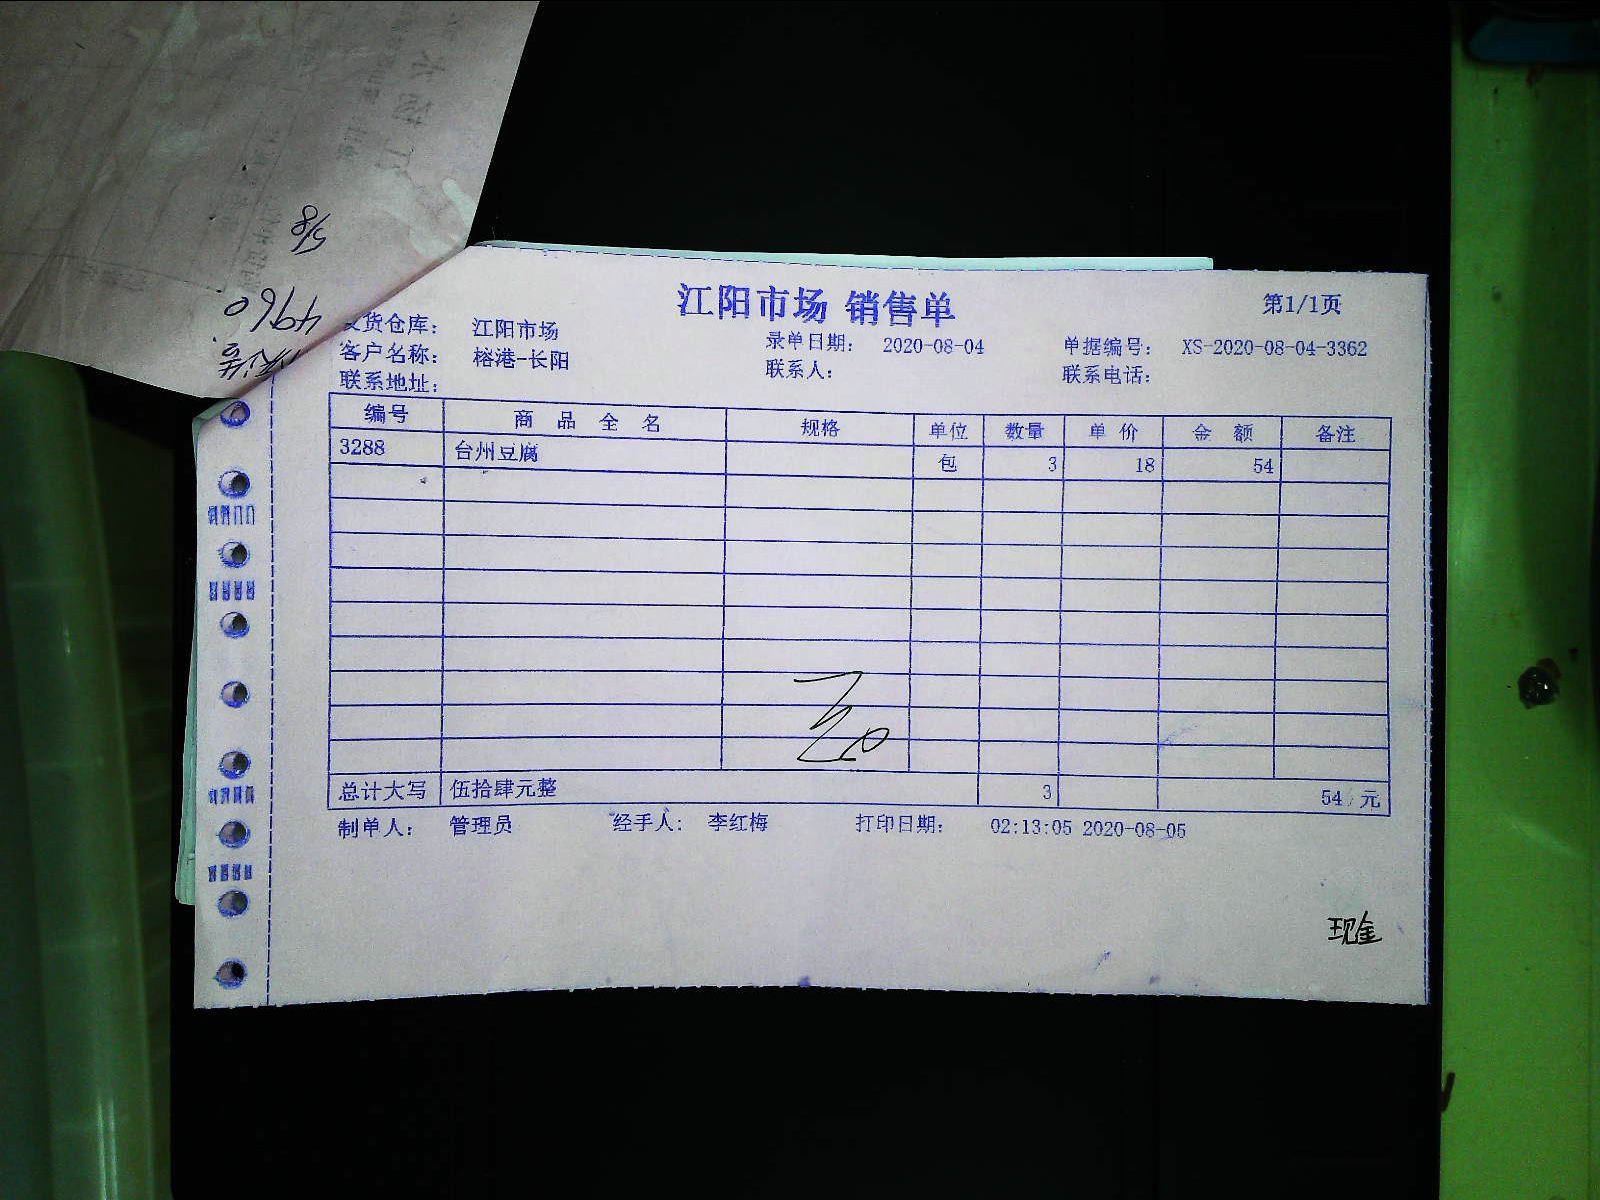 江阳市场 销售单
第1/1页
发货仓库： 江阳市场
录单日期： 2020-08-04
单据编号： XS-2020-08-04-3362
客户名称： 榕港-长阳
联系人：
联系电话：
联系地址：
编号 商 品 全 名 规格 单位 数量 单 价 金 额 备注
3288 台州豆腐 包 3 18 54
总计大写 伍拾肆元整 3 54 元
制单人： 管理员 经手人： 李红梅 打印日期： 02:13:05 2020-08-05
现金
5/8
4960